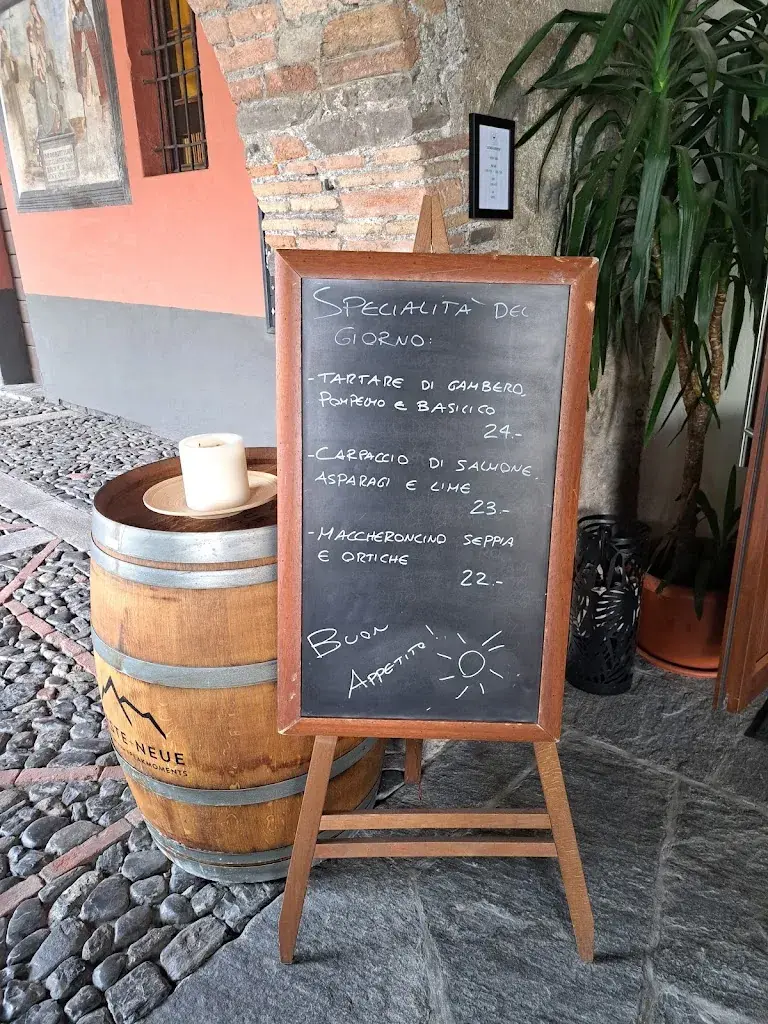 SPECIALITA' DEL
GIORNO:
- TARTARE DI GAMBERO,
POMPELMO E BASILICO
24.-
- CARPACCIO DI SALMONE,
ASPARAGI E LIME
23.-
- MACCHERONCINO SEPPIA
E ORTICHE
22.-
BUON
APPETITO!
NEUE